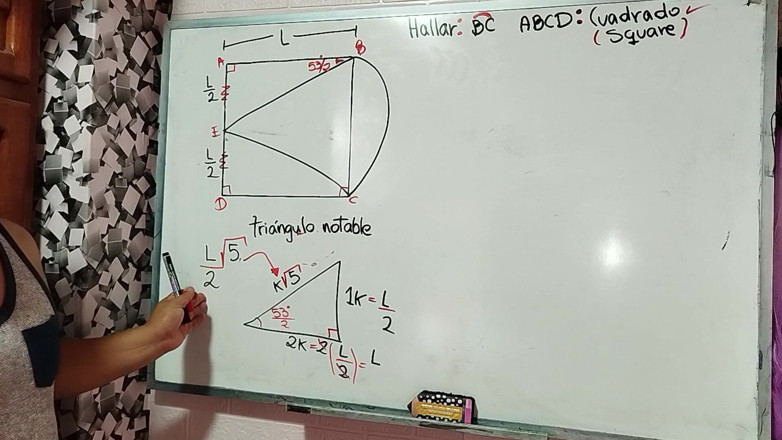 Hallar: BC ABCD: Cuadrado
(Square)
L
A B
53°/2
L/2
E
L/2
D C
Triángulo notable
L/2 √5
K√5
1K = L/2
53°/2
2K = 2(L/2) = L